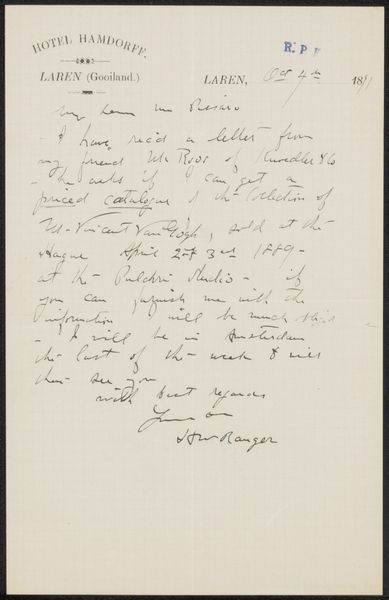 HOTEL HAMDORFF.
LAREN (Gooiland.)
R. P.
LAREN, Oct 4th 1891
My dear Mr
I have rec'd a letter from
my friend Mr Roos of Knoedler & Co
- he asks if I can get a
priced catalogue of the Collection of
Mr Vincent Van Gogh, sold at the
Hague April 2nd 3rd 1889 -
at the Pulchri Studio - if
you can furnish me with the
information will be much
- I will be in Amsterdam
the last of the week & will
then see you
with best regards
Yours
HW Ranger